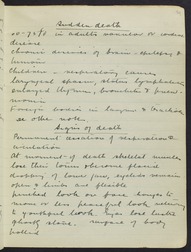 Sudden death
in adults vascular or
disease
Chronic diseases of brain - epilepsy &
tumours
Children - respiratory causes,
laryngeal spasm, status lymphaticus
enlarged thymus, bronchitis & pneu-
monia
Foreign bodies in larynx & trachea
see other note.
Signs of death
Permanent cessation of respiration &
circulation
At moment of death skeletal muscles
lose their tone, become flaccid
dropping of lower jaw, eyelids remain
open & limbs are flexible
look or gone
more or less peaceful look
a youthful look. Eyes lose lustre
glassy stare. of body
pallid